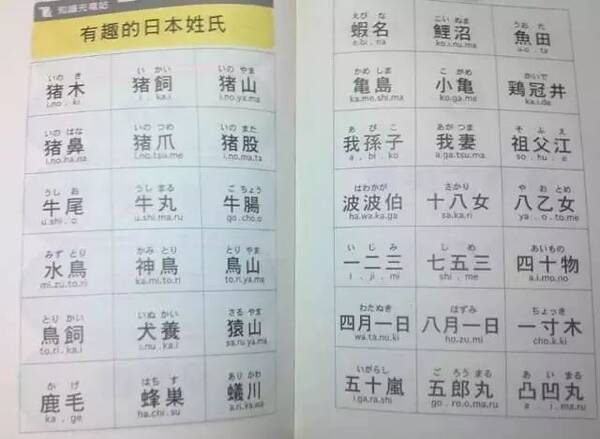 知識充電站
有趣的日本姓氏
いの き　い かい　いの やま
猪木　猪飼　猪山
i.no . ki　i . ka.i　i.no.ya.ma
いの はな　いの つめ　いの また
猪鼻　猪爪　猪股
i.no . na　i.no.tsu.me　i.no.ma.ta
うし お　うし まる　ご ちょう
牛尾　牛丸　牛腸
u.shi . o　u.shi.ma.ru　go.cho.o
みず とり　かみ とり　とり やま
水鳥　神鳥　鳥山
mi.zu.to.ri　ka.mi.to.ri　to.ri.ya.ma
とり かい　いぬ かい　さる やま
鳥飼　犬養　猿山
to.ri.ka.i　i.nu . ka.i　sa.ru.ya.ma
か げ　はち す　あり かわ
鹿毛　蜂巢　蟻川
ka . ge　ha.chi . su　a.ri.ka.wa
えび な　こい ぬま　うお た
蝦名　鯉沼　魚田
e.bi . na　ko.i.nu.ma　u.o . ta
かめ しま　こ がめ　かいで
亀島　小亀　鶏冠井
ka.me.shi.ma　ko.ga.me　ka.i.de
あ び こ　あが つま　そ ふ え
我孫子　我妻　祖父江
a . bi . ko　a.ga.tsu.ma　so . hu . e
はわかが　さかり　や おと め
波波伯　十八女　八乙女
ha.wa.ka.ga　sa.ka.ri　ya . o.to.me
い じ み　し め　あいもの
一二三　七五三　四十物
i . ji . mi　shi . me　a.i.mo.no
わたぬき　ほずみ　ちょっき
四月一日　八月一日　一寸木
wa.ta.nu.ki　ho.zu.mi　cho.k.ki
いがらし　ご ろう まる　あ い まる
五十嵐　五郎丸　凸凹丸
i.ga.ra.shi　go . ro.o.ma.ru　a . i.ma.ru